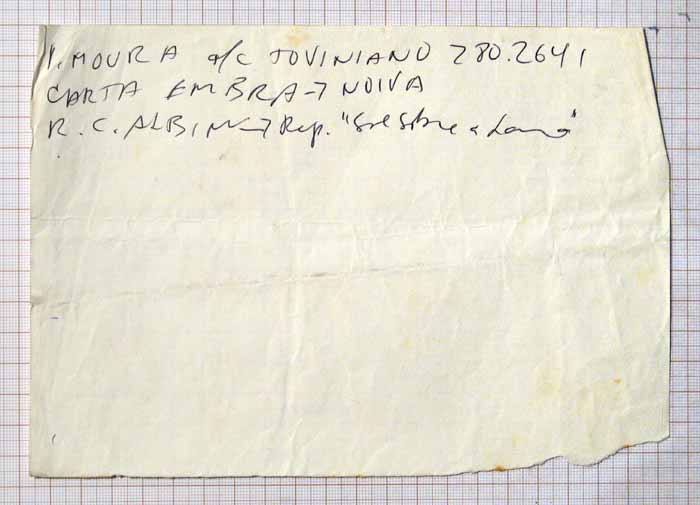 MOURA a/c JOVINIANO 280.2641
CARTA EMBRA→ NOIVA
R. C. ALBIN → Rep. "Sol Sobre a Lama"